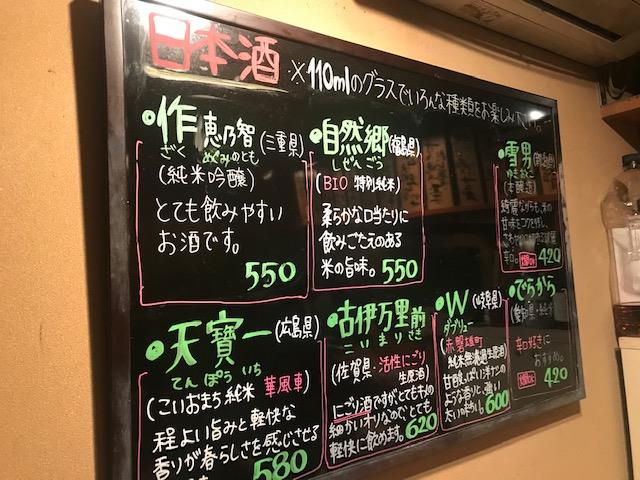 日本酒 ※110mlのグラスでいろんな種類をお楽しみ下さい。
・作 恵乃智 (三重県)
ざく めぐみのとも
(純米吟醸)
とても飲みやすい
お酒です。
550
・自然郷 (福島県)
しぜんごう
(BIO 特別純米)
柔らかな口当たりに
飲みごたえのある
米の旨味。550
・雪男
ゆきおとこ
(本醸造)
綺麗ながらも、米の
甘味とコクを残し、
辛口。 420
・天寶一 (広島県)
てんぽう いち
(こいおまち純米 華風車)
程よい旨みと軽快な
香りが春らしさを感じさせる
580
・古伊万里前
こいまりさき
(佐賀県・活性にごり
生原酒)
にごり酒ですが、とてもキメの
細かいオリなのでとても
軽快に飲めます。620
・W (岐阜県)
ダブリュー
(赤磐雄町
純米無濾過生原酒)
甘酸っぱい洋ナシの
ような香りと、濃い
600
・でらから
辛口好きに
おすすめ。
420